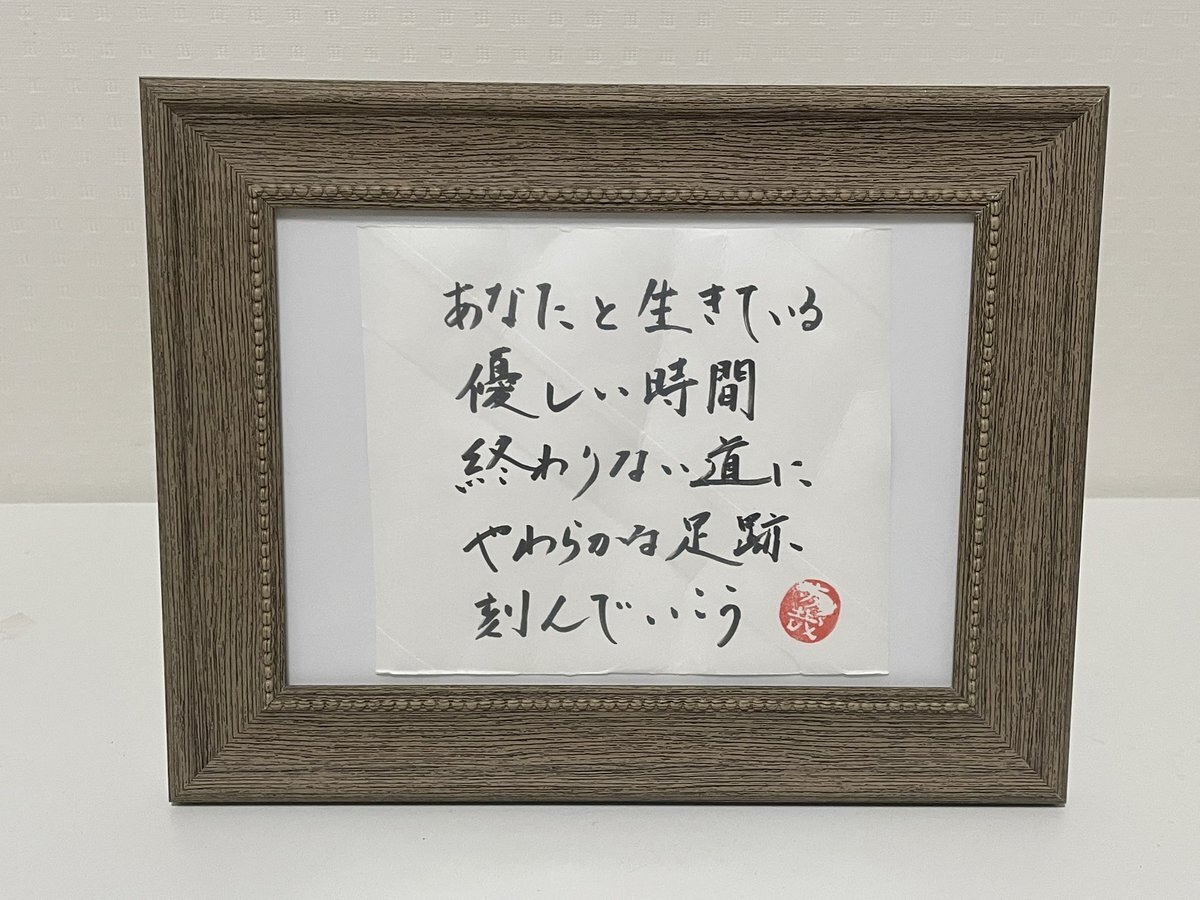 あなたと生きている
優しい時間
終わりない道に
やわらかな足跡、
刻んでいこう